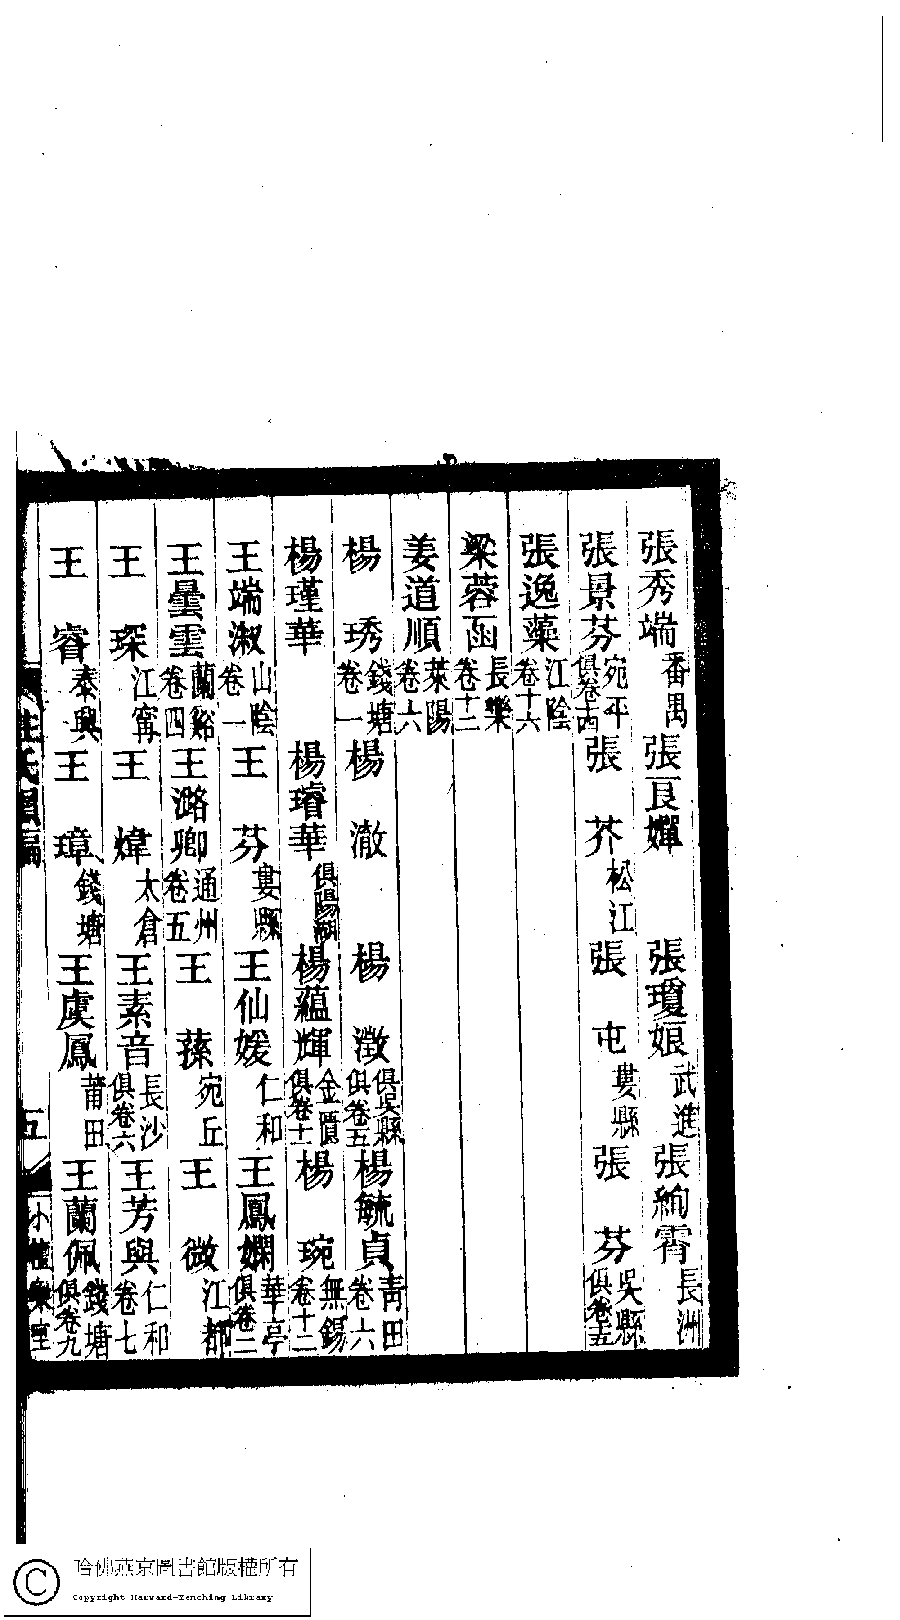 張秀端番禺 張良嬋 張瓊娘武進 張絢霄長洲
張景芬宛平俱卷十四 張芥松江 張屯婁縣 張芬吳縣俱卷十五
張逸藻江陰卷十六
梁蓉函長樂卷十二
姜道順萊陽卷六
楊琇錢塘卷一 楊澈 楊澂俱吳縣俱卷五 楊毓貞青田卷六
楊瑾華 楊璿華俱陽湖 楊蘊輝金匱俱卷十一 楊琬無錫卷十二
王端淑山陰卷一 王芬婁縣 王仙媛仁和 王鳳嫻華亭俱卷二
王曇雲蘭谿卷四 王潞卿通州卷五 王蓀宛丘 王微江都
王琛江寧 王煒太倉 王素音長沙俱卷六 王芳與仁和卷七
王睿泰興 王璋錢塘 王虞鳳莆田 王蘭佩錢塘俱卷九
五
哈佛燕京圖書館版權所有
Copyright Harvard-Yenching Library